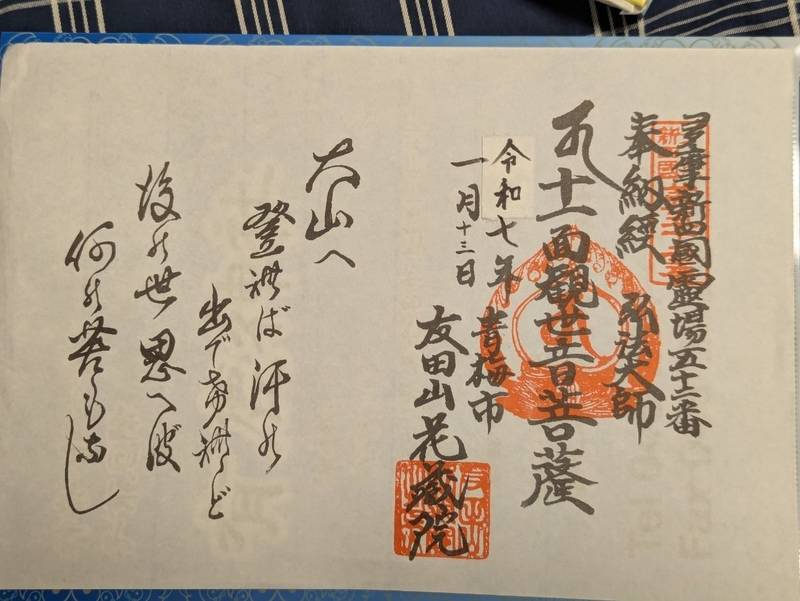 多摩新四國霊場五十二番
奉納經 弘法大師
十一面觀世音菩薩
令和七年 青梅市
一月十三日
友田山花蔵院
大山へ
登禮ば汗の
出で希禮ど
後の世思へば
何の苦もなし